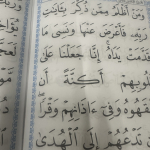 وَمَنْ أَظْلَمُ مِمَّن ذُكِّرَ بِـَٔايَـٰتِ
رَبِّهِۦ فَأَعْرَضَ عَنْهَا وَنَسِىَ مَا
قَدَّمَتْ يَدَاهُ ۚ إِنَّا جَعَلْنَا عَلَىٰ
قُلُوبِهِمْ أَكِنَّةً أَن
يَفْقَهُوهُ وَفِىٓ ءَاذَانِهِمْ وَقْرًا ۖ
تَدْعُهُمْ إِلَى ٱلْهُدَىٰ